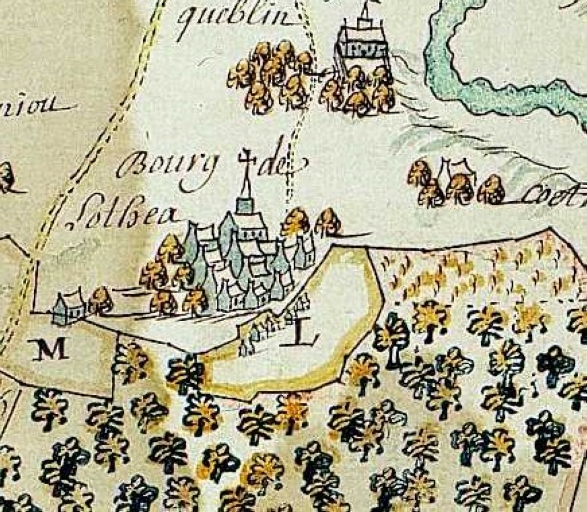 queblin
niou
Bourg de
Lothea
coet
M
L